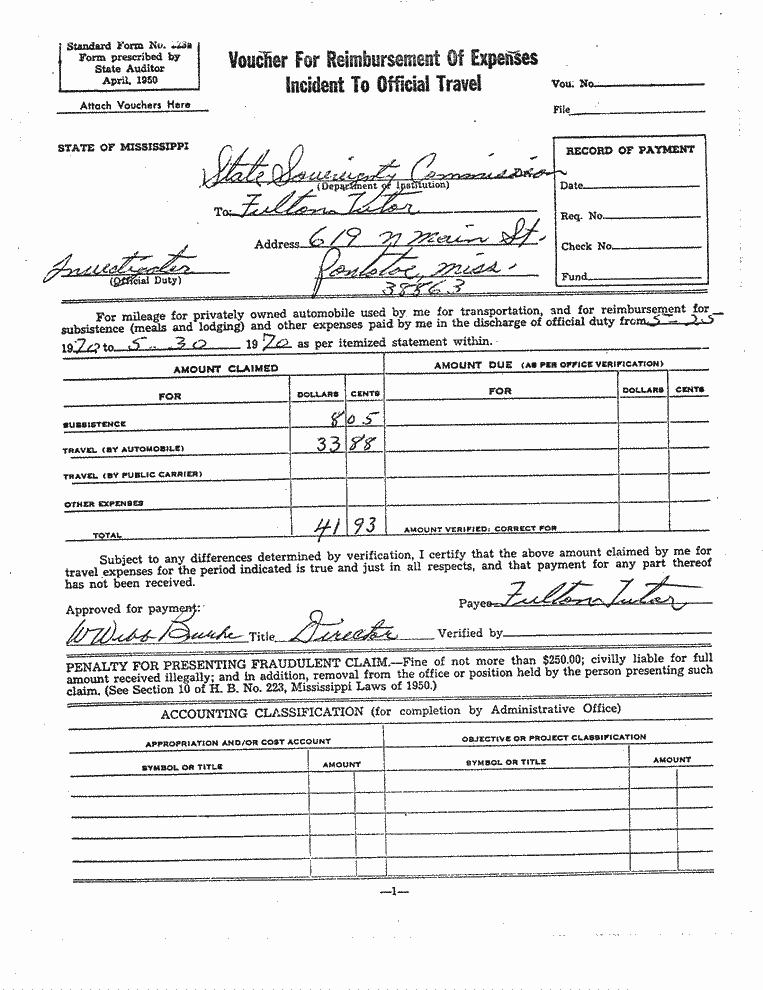 Standard Form No. 223a
Form prescribed by
State Auditor
April, 1950
Attach Vouchers Here
Voucher For Reimbursement Of Expenses
Incident To Official Travel
Vou. No.
File
STATE OF MISSISSIPPI
State Soveriegnty Commission
(Department or Institution)
To: Fulton Tutor
Address 619 N Main St.
Pontotoc, Miss.
38863
Investigator
(Official Duty)
RECORD OF PAYMENT
Date
Req. No.
Check No.
Fund
For mileage for privately owned automobile used by me for transportation, and for reimbursement for
subsistence (meals and lodging) and other expenses paid by me in the discharge of official duty from 5-25
1970 to 5-30 1970 as per itemized statement within.
AMOUNT CLAIMED AMOUNT DUE (AS PER OFFICE VERIFICATION)
FOR DOLLARS CENTS FOR DOLLARS CENTS
SUBSISTENCE 8 05
TRAVEL (BY AUTOMOBILE) 33 88
TRAVEL (BY PUBLIC CARRIER)
OTHER EXPENSES
TOTAL 41 93 AMOUNT VERIFIED: CORRECT FOR
Subject to any differences determined by verification, I certify that the above amount claimed by me for
travel expenses for the period indicated is true and just in all respects, and that payment for any part thereof
has not been received.
Payee Fulton Tutor
Approved for payment:
W Webb Burke Title Director Verified by
PENALTY FOR PRESENTING FRAUDULENT CLAIM.—Fine of not more than $250.00; civilly liable for full
amount received illegally; and in addition, removal from the office or position held by the person presenting such
claim. (See Section 10 of H. B. No. 223, Mississippi Laws of 1950.)
ACCOUNTING CLASSIFICATION (for completion by Administrative Office)
APPROPRIATION AND/OR COST ACCOUNT OBJECTIVE OR PROJECT CLASSIFICATION
SYMBOL OR TITLE AMOUNT SYMBOL OR TITLE AMOUNT
—1—